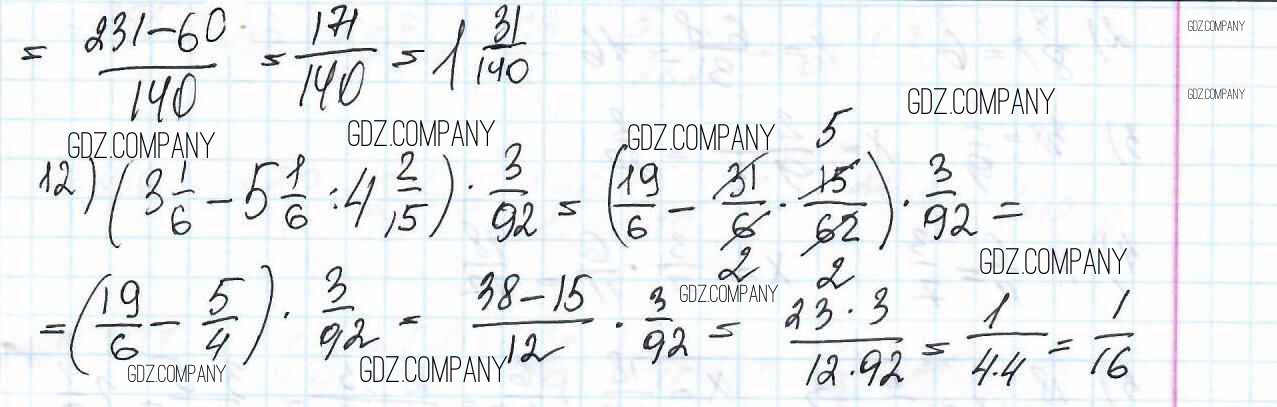 = (231-60)/140 = 171/140 = 1 31/140
GDZ.COMPANY
GDZ.COMPANY
GDZ.COMPANY GDZ.COMPANY GDZ.COMPANY GDZ.COMPANY
12) (3 1/6 - 5 1/6 : 4 2/15) · 3/92 = (19/6 - 31/6 · 15/62) · 3/92 =
5
2 2
GDZ.COMPANY
= (19/6 - 5/4) · 3/92 = (38-15)/12 · 3/92 = (23·3)/(12·92) = 1/(4·4) = 1/16
GDZ.COMPANY
GDZ.COMPANY GDZ.COMPANY